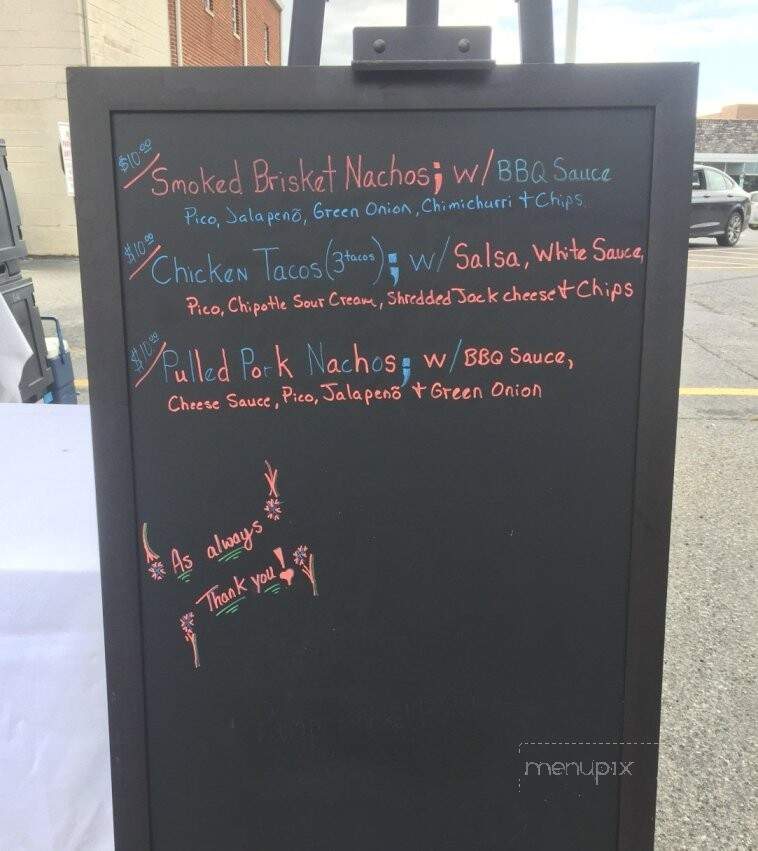 $10.00 Smoked Brisket Nachos; w/ BBQ Sauce
Pico, Jalapenõ, Green Onion, Chimichurri + Chips
$10.00 Chicken Tacos (3 tacos); w/ Salsa, White Sauce,
Pico, Chipotle Sour Cream, Shredded Jack cheese + Chips
$10.00 Pulled Pork Nachos; w/ BBQ Sauce,
Cheese Sauce, Pico, Jalapenõ + Green Onion
As always
Thank you!
menupix